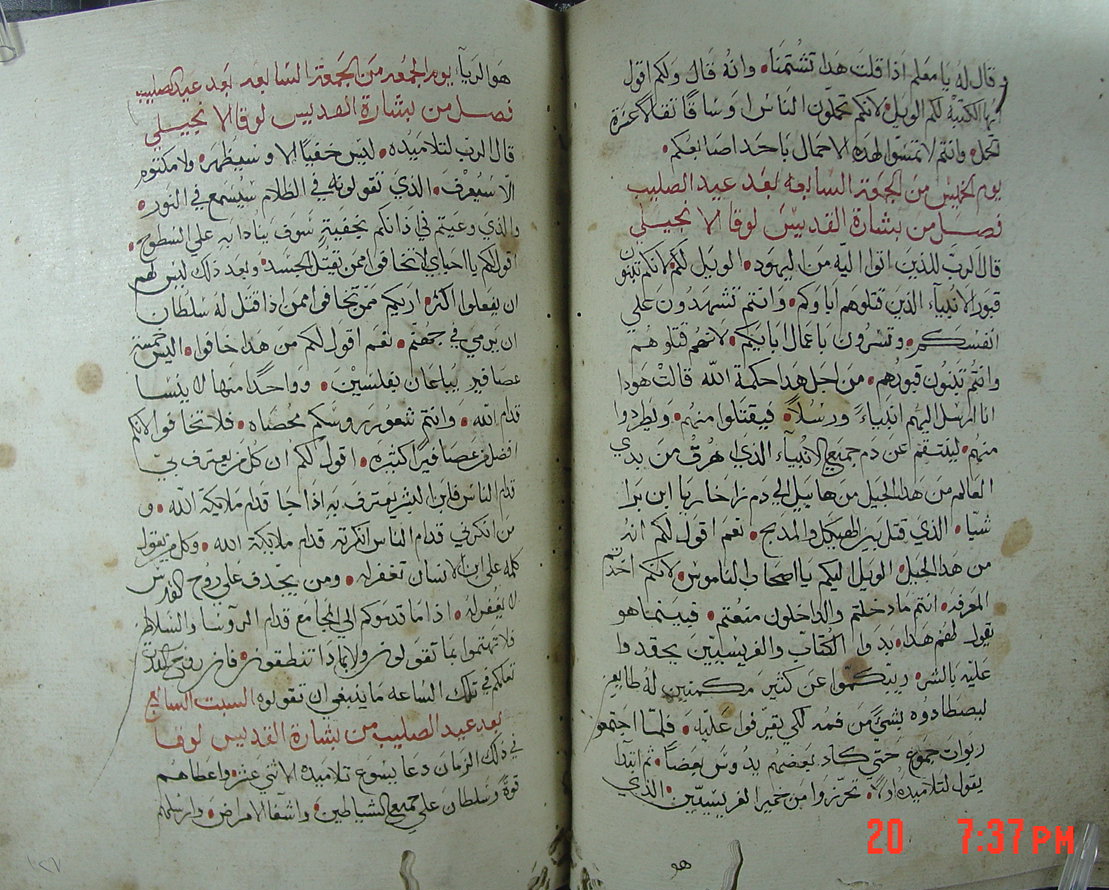 وقال له يا معلم اذا قلت هذا تشتمنا وانه قال ولكم اقول
ايها الكتبة لكم الويل لانكم تحملون الناس اوساقا ثقالا عسرة
تحمل وانتم لا تمسوا لهذه الاحمال باحد اصابعكم
يوم الخميس من الجمعة السابعه بعد عيد الصليب
فصل من بشارة القديس لوقا الانجيلي
قال الرب للذين اتوا اليه من اليهود الويل لكم لانكم تبنون
قبور الانبياء الذين قتلوهم اباوكم وانتم تشهدون علي
انفسكم وتسرون باعمال ابايكم لانهم قتلوهم
وانتم تبنون قبورهم من اجل هذا حكمة الله قالت هوذا
انا ارسل اليهم انبياء ورسلا فيقتلوا منهم ويطردوا
منهم لينتقم عن دم جميع الانبياء الذي اهرق من بدي
العالم من هذا الجيل من هابيل الي دم زاخاريا ابن برا
شيا الذي قتل بين الهيكل والمذبح نعم اقول لكم انه
من هذا الجيل الويل اليكم يا اصحاب الناموس لانكم اخذتم
المعرفه انتم ما دخلتم والداخلون منعتم فبينما هو
يقول لهم هذا بدوا الكتاب والفريسيين يحقدوا
عليه بالشر ويتكموا عن كثير مكمنين له طالبين
ليصطادوه بشي من فمه لكي يقرفوا عليه فلما اجتمعو
ربوات جموع حتي كاد بعضهم يدوس بعضا ثم ابتدا
يقول لتلاميذه اولا تحرزوا من خمير الفريسيين الذي
هو
هو الريا يوم الجمعه من الجمعة السابعه بعد عيد الصليب
فصل من بشارة القديس لوقا الانجيلي
قال الرب لتلاميذه ليس خفيا الا وسيظهر ولا مكتوم
الا سيعرف الذي تقولونه في الظلام سيسمع في النور
والذي وعيتم في اذانكم بخفية سوف ينادا به علي السطوح
اقول لكم يا احباي لا تخافوا ممن يقتل الجسد وبعد ذلك ليس لهم
ان يفعلوا اكثر اريكم ممن تخافوا ممن اذا قتل له سلطان
ان يرمي في جهنم نعم اقول لكم من هذا خافوا اليس خمسة
عصافير يباعان بفلسين وواحدا منها لا ينسا
قدام الله وانتم شعور روسكم محصاه فلا تخافوا لانكم
افضل من عصافير اكثره اقول لكم ان كل من يعترف بي
قدام الناس فابن البشر يعترف به اذا جا قدام ملايكة الله و
من انكرني قدام الناس انكرته قدام ملايكة الله وكل من يقول
كلمه علي ابن الانسان تغفر له ومن يجدف علي روح القدس
لا يغفر له اذا ما قدموكم الي المجامع قدام الروسا والسلاطين
فلا تهتموا بما تقولون ولا بماذا تنطقون فان روح القدس
تعلمكم في تلك الساعه ما ينبغي ان تقولوه السبت السابع
بعد عيد الصليب من بشارة القديس لوقا
في ذلك الزمان دعا يسوع تلاميذه الاثني عشر واعطاهم
قوة وسلطان علي جميع الشياطين واشفا الامراض وارسلهم
20 7:37 PM